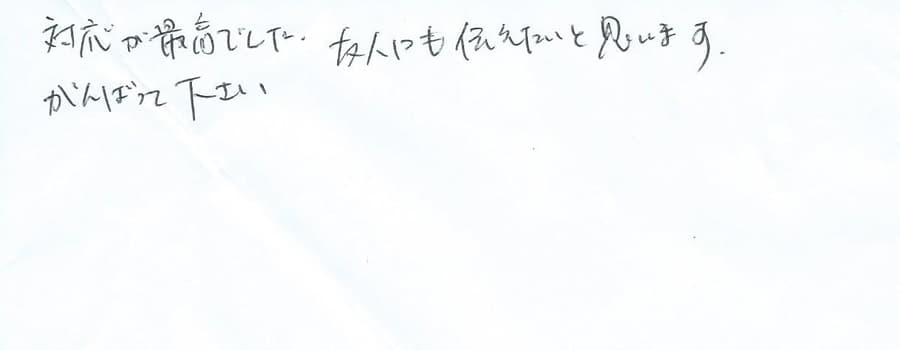 対応が最高でした. 友人にも伝えたいと思います.
がんばって下さい